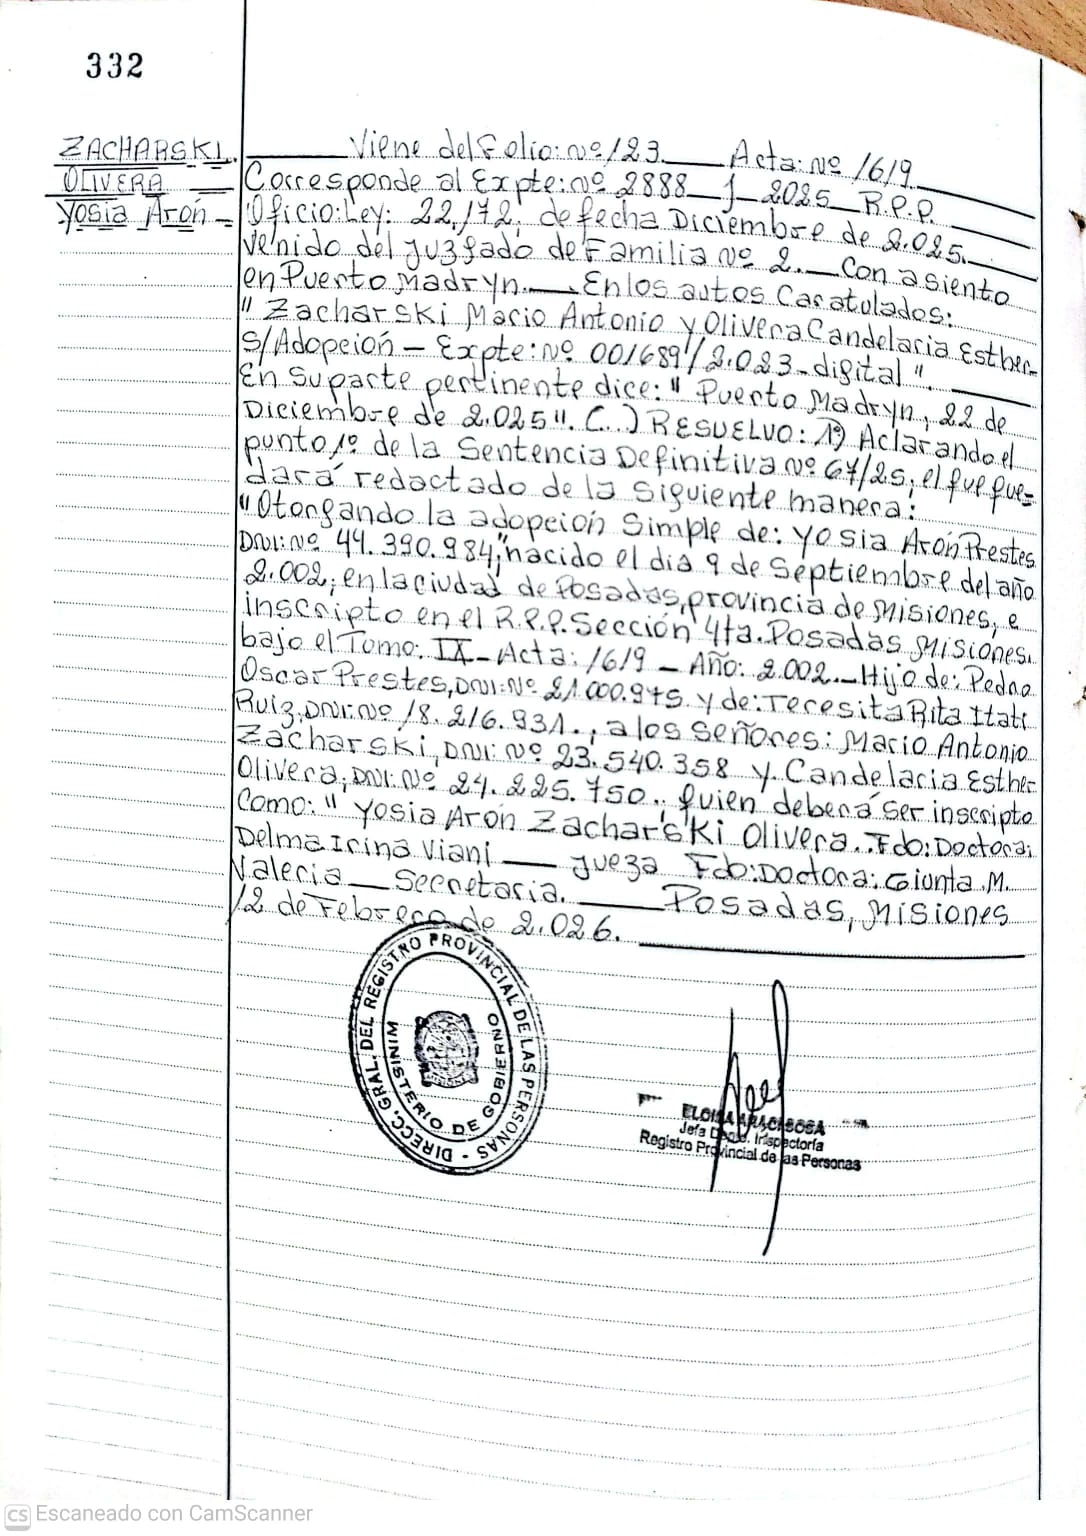 332
ZACHARSKI
OLIVERA
Yosia Arón
Viene del Folio: Nº 123. Acta: Nº 1619
Corresponde al Expte: Nº 2888 J 2025 R.P.P.
Oficio: Ley: 22.172. de fecha Diciembre de 2.025.
venido del Juzgado de Familia Nº 2. Con asiento
en Puerto Madryn. En los autos Caratulados:
" Zacharski Mario Antonio y Olivera Candelaria Esther
S/Adopción - Expte: Nº 001689 / 2.023 - digital ".
En su parte pertinente dice: " Puerto Madryn, 22 de
Diciembre de 2.025". (...) RESUELVO: 1º) Aclarando el
punto 1º de la Sentencia Definitiva Nº 67/25, el que que=
dará redactado de la siguiente manera:
"Otorgando la adopción Simple de: Yosia Arón Prestes
DNI: Nº 44.390.984, nacido el dia 9 de Septiembre del año
2.002, en la ciudad de Posadas, provincia de Misiones, e
inscripto en el R.P.P. Sección 4ta. Posadas Misiones.
bajo el Tomo: IX - Acta: 1619 - Año: 2.002. Hijo de: Pedro
Oscar Prestes, DNI: Nº 21.000.975 y de: Teresita Rita Itatí
Ruiz, DNI: Nº 18.216.931., a los Señores: Mario Antonio
Zacharski, DNI: Nº 23.540.358 y Candelaria Esther
Olivera, DNI: Nº 24.225.750., quien deberá ser inscripto
Como: " Yosia Arón Zacharski Olivera. Fdo: Doctora;
Delma Irina Viani — Jueza Fdo: Doctora; Giunta M.
Valeria — Secretaria. Posadas, Misiones
12 de Febrero de 2.026.
DIRECC. GRAL. DEL REGISTRO PROVINCIAL DE LAS PERSONAS -
MINISTERIO DE GOBIERNO
MISIONES
Jefa Dpto. Inspectoría
Registro Provincial de las Personas
CS Escaneado con CamScanner